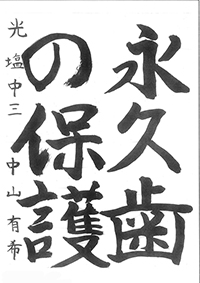 永久歯
の保護
光塩中三 中山有希